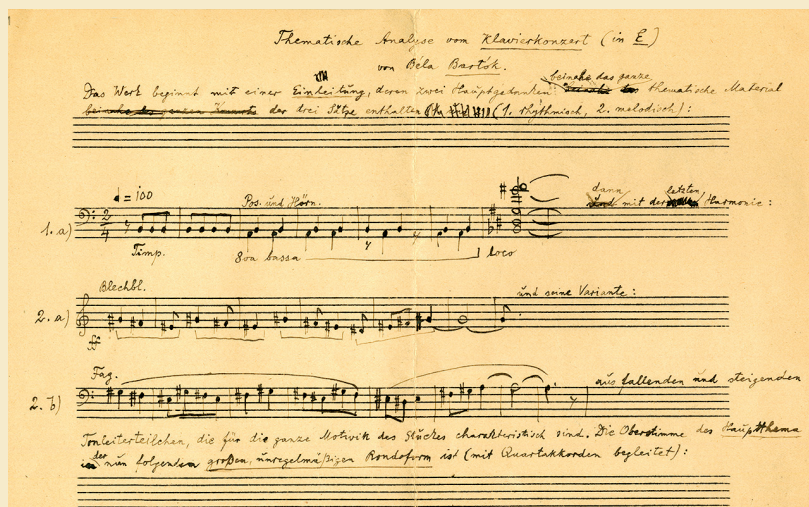 Thematische Analyse vom Klavierkonzert (in E)
von Béla Bartók.
beinahe das ganze
Das Werk beginnt mit einer Einleitung, deren zwei Hauptgedanken thematische Material
der drei Sätze enthalten (1. rhythmisch, 2. melodisch):
♩ = 100
Pos. und Hörn.
dann letzten
mit der Harmonie:
1. a)
2/4
Timp. 8va bassa loco
Blechbl.
und seine Variante:
2. a)
ff
Fag.
aus fallenden und steigenden
2. b)
Tonleiterteilchen, die für die ganze Motivik des Stückes charakteristisch sind. Die Oberstimme des Hauptthema
der nun folgenden großen, unregelmäßigen Rondoform ist (mit Quartakkorden begleitet):